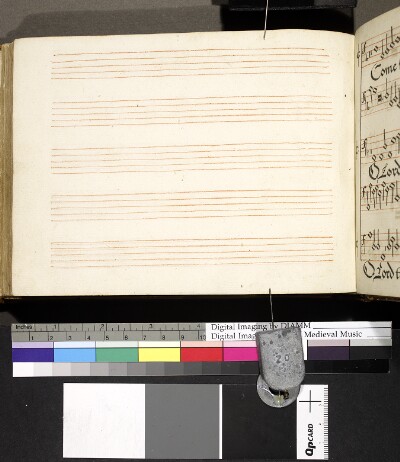 Come
O Lord
O Lord t
Inches 1 2 3
1 2 3 4 5 6 7 8 9 10
Digital Imaging by DIAMM
Digital Imag Medieval Music
20
QPCARD